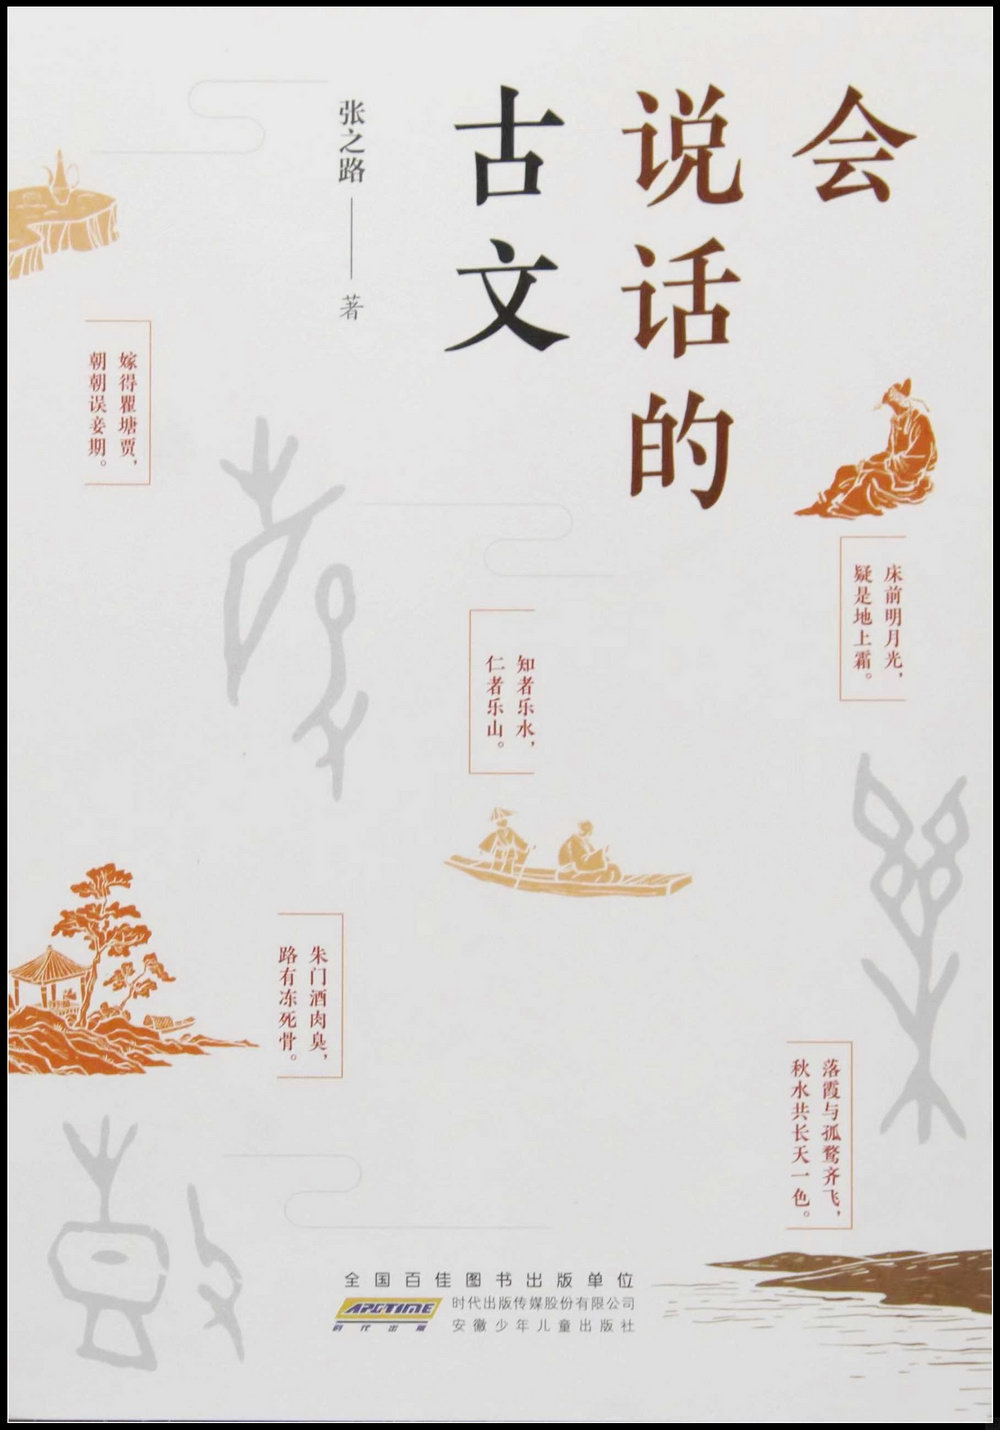 会
说话的
古文
张之路——著
床前明月光，
疑是地上霜。
知者乐水，
仁者乐山。
嫁得瞿塘贾，
朝朝误妾期。
朱门酒肉臭，
路有冻死骨。
落霞与孤鹜齐飞，
秋水共长天一色。
全国百佳图书出版单位
APGTIME
时代出版
时代出版传媒股份有限公司
安徽少年儿童出版社